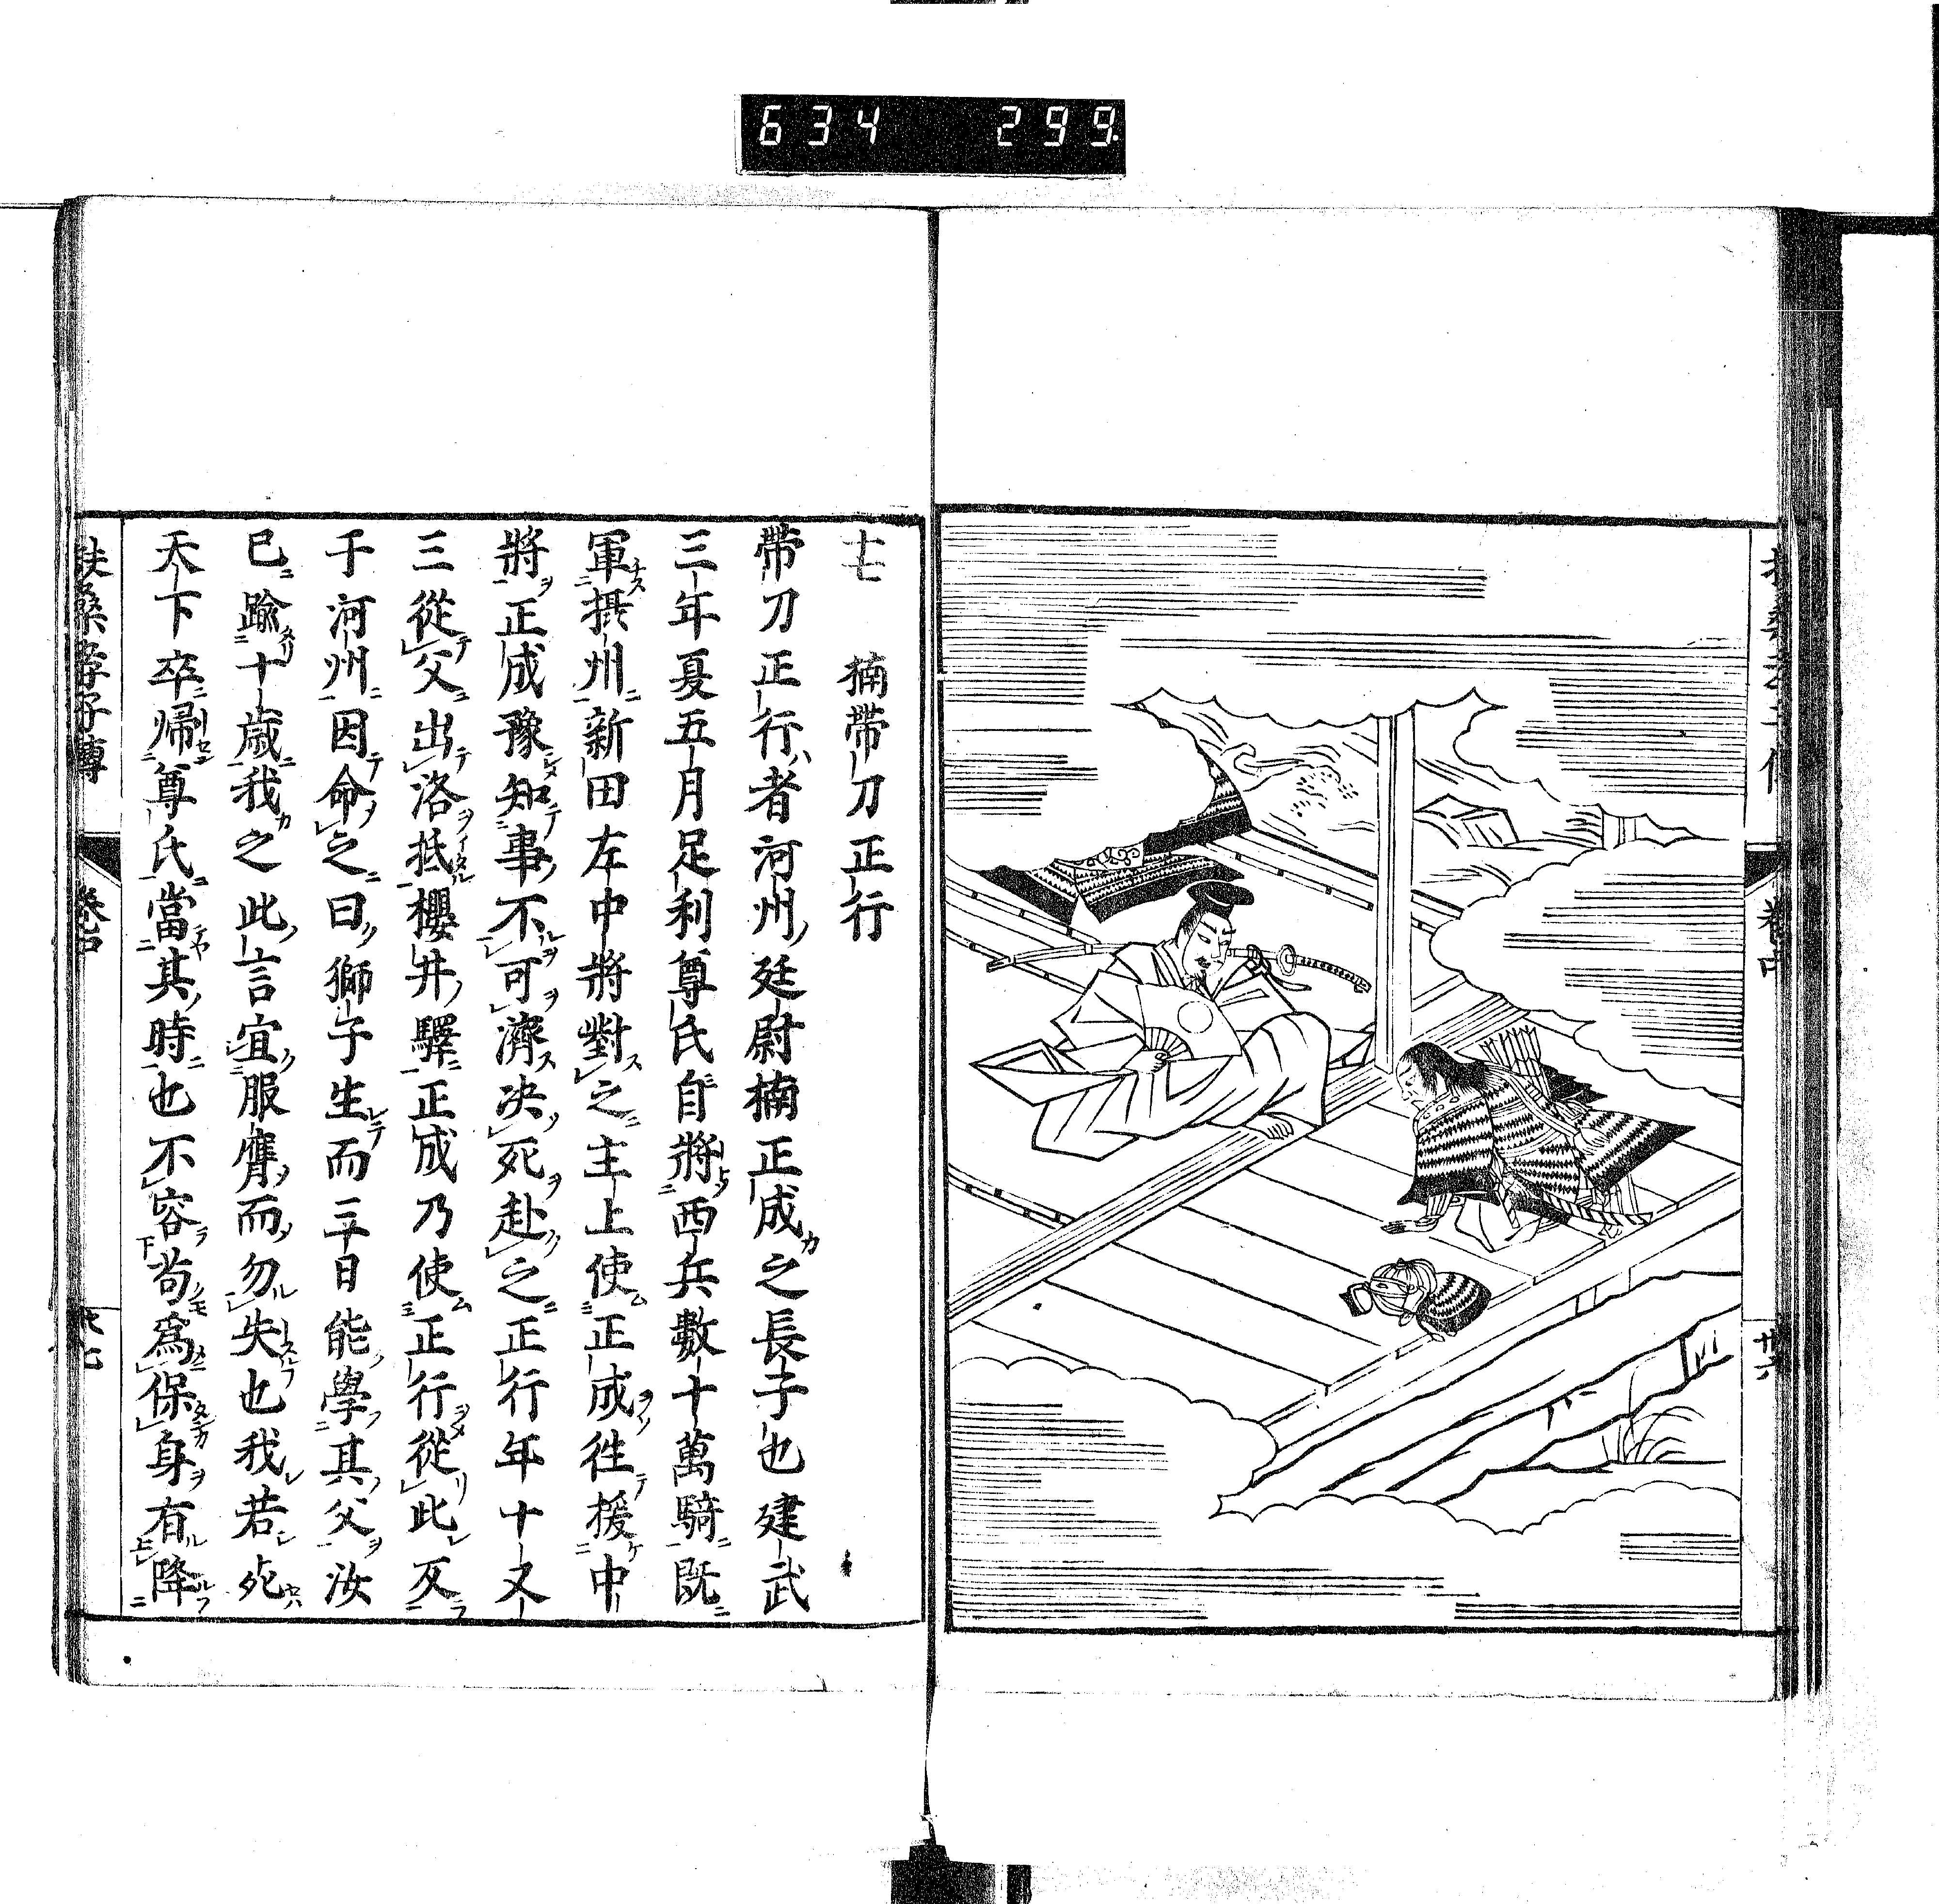 634 299
十七 楠帶刀正行
帶刀正行者河州廷尉楠正成之長子也建武
三年夏五月足利尊氏自將西兵數十萬騎既
軍攝州新田左中將對之主上使正成徃援中
將正成豫知事不可濟决死赴之正行年十又
三從父出洛抵櫻井驛正成乃使正行從此反
于河州因命之曰獅子生而三日能學其父汝
已踰十歳我之此言宜服膺而勿失也我若死
天下卒歸尊氏當其時也不容苟爲保身有降
扶桑孝子傳